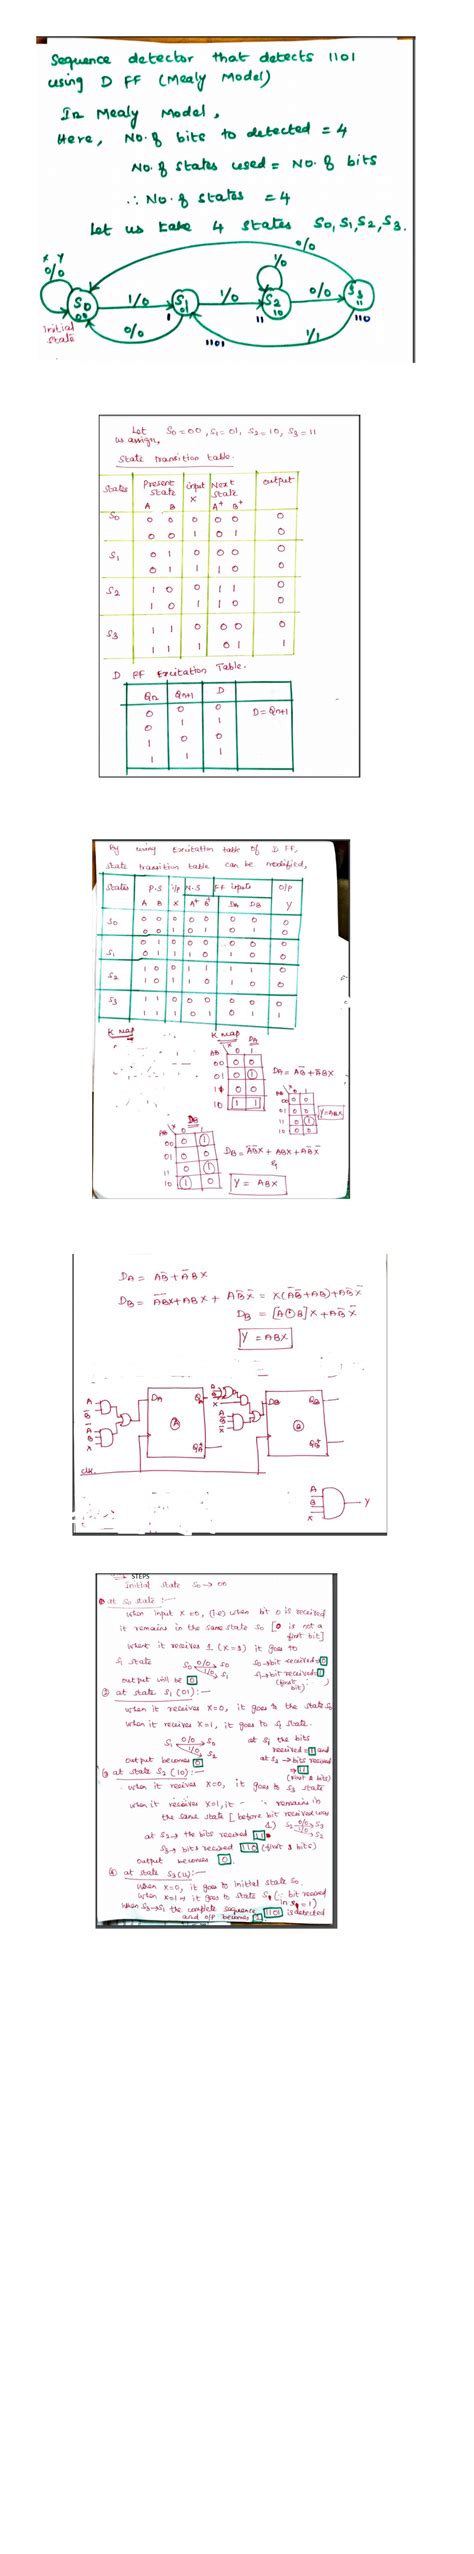 Sequence detector that detects 1101
using D FF (Mealy Model)
In Mealy Model,
Here, No. of bits to detected = 4
No. of states used = No. of bits
∴ No. of states = 4
Let us take 4 states S0, S1, S2, S3.
X Y
0/0
S0
00
Initial
state
1/0
0/0
S1
01
1
1/0
1/0
S2
10
11
0/0
0/0
S3
11
110
1/1
1101
Let S0 = 00, S1 = 01, S2 = 10, S3 = 11
us assign,
State transition table.
States Present state input Next state output
A B X A+ B+
S0 0 0 0 0 0 0
0 0 1 0 1 0
S1 0 1 0 0 0 0
0 1 1 1 0 0
S2 1 0 0 1 1 0
1 0 1 1 0 0
S3 1 1 0 0 0 0
1 1 1 0 1 1
D FF Excitation Table.
Qn Qn+1 D
0 0 0 D = Qn+1
0 1 1
1 0 0
1 1 1
By using Excitation table of D FF,
state transition table can be modified,
States P.S i/p N.S FF inputs O/P
A B X A+ B+ DA DB Y
S0 0 0 0 0 0 0 0 0
0 0 1 0 1 0 1 0
S1 0 1 0 0 0 0 0 0
0 1 1 1 0 1 0 0
S2 1 0 0 1 1 1 1 0
1 0 1 1 0 1 0 0
S3 1 1 0 0 0 0 0 0
1 1 1 0 1 0 1 1
K map
K map DA
AB X 0 1
00 0 0
01 0 1
11 0 0
10 1 1
DA = AB̄ + ĀBX
AB X 0 1
00 0 0
01 0 0
11 0 1
10 0 0
Y = ABX
DB
AB X 0 1
00 0 1
01 0 0
11 0 1
10 1 0
DB = ĀB̄X + ABX + AB̄X̄
Y = ABX
DA = AB̄ + ĀBX
DB = ĀB̄X + ABX + AB̄X̄ = X(ĀB̄ + AB) + AB̄X̄
DB = [A⊙B]X + AB̄X̄
Y = ABX
A
B̄
Ā
B
X
DA
QA
A
clk.
A
B
X
A
B̄
X̄
DB
QB
B
A
B
X
Y
STEPS
Initial state S0 → 00
① at S0 state :-
When input X = 0, (i.e) when bit 0 is received
it remains in the same state S0 [0 is not a
first bit]
When it receives 1 (X = 1) it goes to
S1 state
S0 0/0 → S0
1/0 → S1
S0 → bit received = 0
S1 → bit received = 1
(first bit)
output will be 0
② at state S1 (01) :-
When it receives X=0, it goes to the state S0
When it receives X=1, it goes to S2 state.
S1 0/0 → S0
1/0 → S2
at S1 the bits
received = 1 and
at S2 → bits received
⇒ 11
(first 2 bits)
output becomes 0
③ at state S2 (10) :-
When it receives X=0, it goes to S3 state
when it receives X=1, it remains in
the same state [before bit received was
1)
S2 0/0 → S3
1/0 → S2
at S2 → the bits received 11
S3 → bits received 110 (first 3 bits)
output becomes 0.
④ at state S3 (11) :-
When X=0, it goes to initial state S0.
When X=1 → it goes to state S1 (∵ bit received
in S1 = 1)
When S3→S1 the complete sequence 1101 is detected
and o/p becomes 1